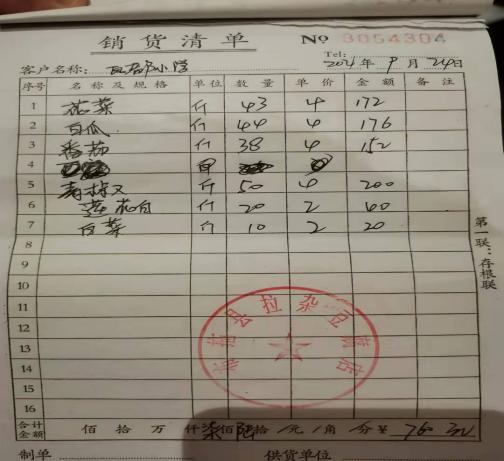 销货清单 No 3054304
Tel:
客户名称: 小学 2024年9月24日
序号 名称及规格 单位 数量 单价 金额 备注
1 花菜 斤 43 4 172
2 白瓜 斤 44 4 176
3 番茄 斤 38 4 152
4
5 青椒 斤 50 4 200
6 莲花白 斤 20 2 40
7 白菜 斤 10 2 20
8
9
10
11
12
13
14
15
16
第一联:存根联
县拉杂豆腐店
合计金额 佰 拾 万 仟 柒佰 陆拾 / 元 / 角 / 分 ¥ 760元
制单 供货单位